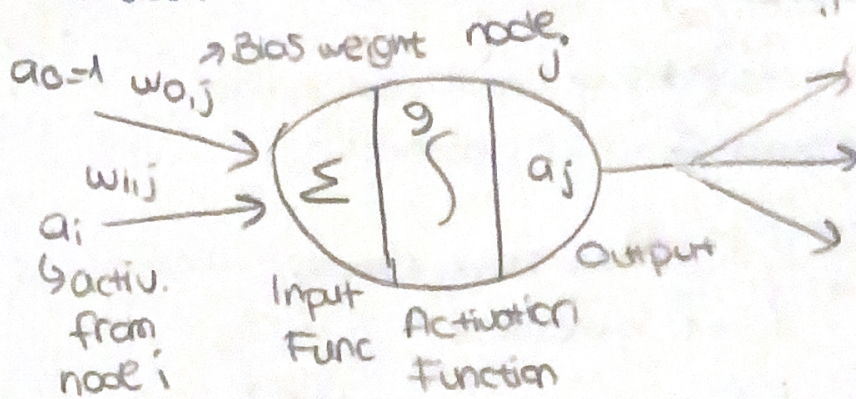 a0=1 w0,j → Bias weight node j
wi,j
ai
↳ activ. from node i
Σ g ∫ aj
Input Func
Activation Function
Output